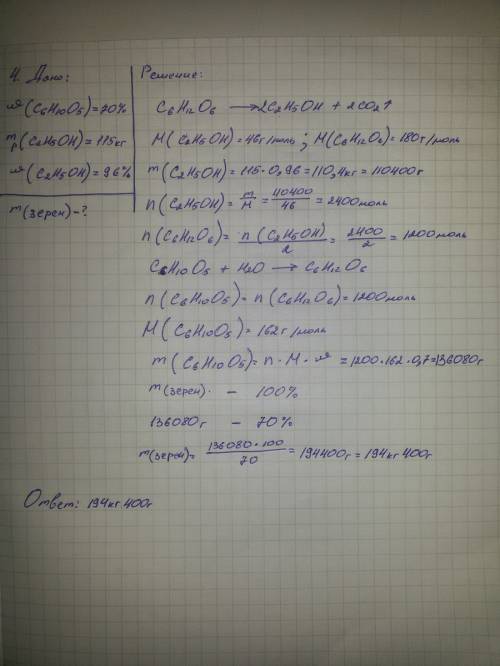 4. Дано:
ω(C6H10O5)=70%
mр(C2H5OH)=115кг
ω(C2H5OH)=96%
m(зерен)-?
Решение:
C6H12O6 → 2C2H5OH + 2CO2↑
M(C2H5OH)=46г/моль; M(C6H12O6)=180г/моль
m(C2H5OH)=115·0,96=110,4кг=110400г
n(C2H5OH)= m/M = 110400/46 = 2400моль
n(C6H12O6)= n(C2H5OH)/2 = 2400/2 = 1200моль
C6H10O5 + H2O → C6H12O6
n(C6H10O5)=n(C6H12O6)=1200моль
M(C6H10O5)=162г/моль
m(C6H10O5)=n·M·ω=1200·162·0,7=136080г
m(зерен). - 100%
136080г - 70%
m(зерен)= 136080·100/70 = 194400г=194кг 400г
Ответ: 194кг 400г